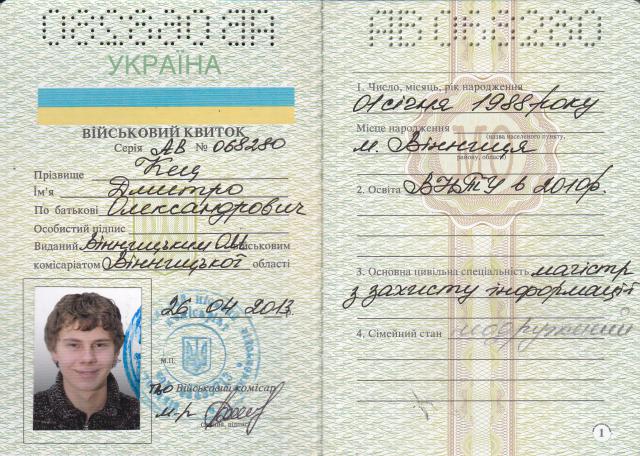 УКРАЇНА
ВІЙСЬКОВИЙ КВИТОК
Серія АВ № 068280
Прізвище Кец
Ім'я Дмитро
По батькові Олександрович
Особистий підпис
Виданий Вінницьким ОМ Військовим
комісаріатом Вінницької області
26 04 2013
М.П.
ТВО Військовий комісар
м-р
1. Число, місяць, рік народження
01 січня 1988 року
Місце народження
(назва населеного пункту,
м. Вінниця
району, області)
2. Освіта ВНТУ в 2010р.
3. Основна цивільна спеціальність магістр
з захисту інформації
4. Сімейний стан неодружений
1